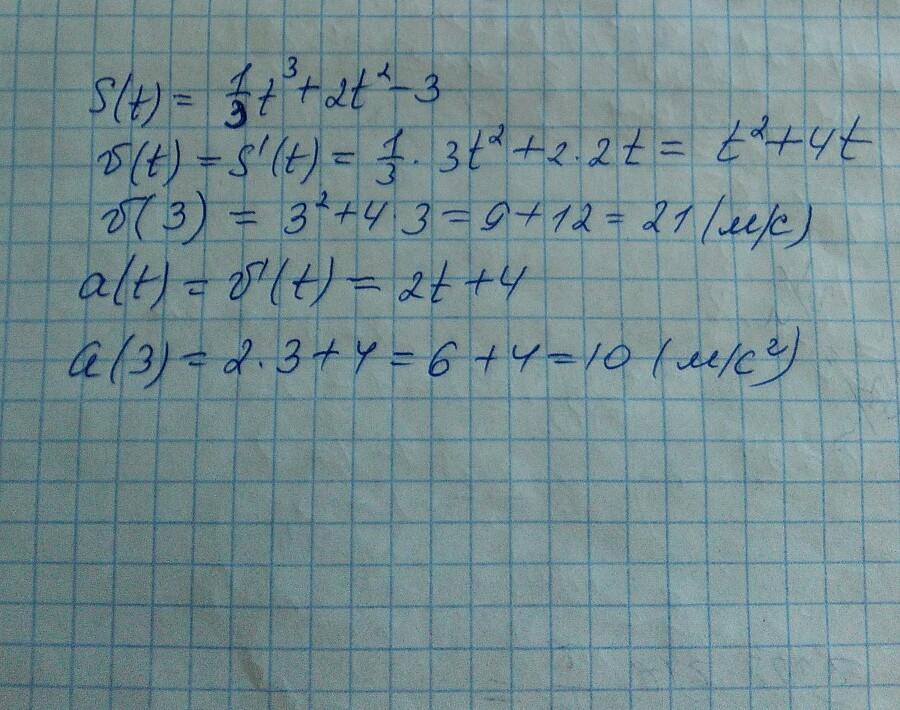 S(t) = 1/3 t³ + 2t² - 3
v(t) = S'(t) = 1/3 · 3t² + 2 · 2t = t² + 4t
v(3) = 3² + 4 · 3 = 9 + 12 = 21 (м/с)
a(t) = v'(t) = 2t + 4
a(3) = 2 · 3 + 4 = 6 + 4 = 10 (м/с²)